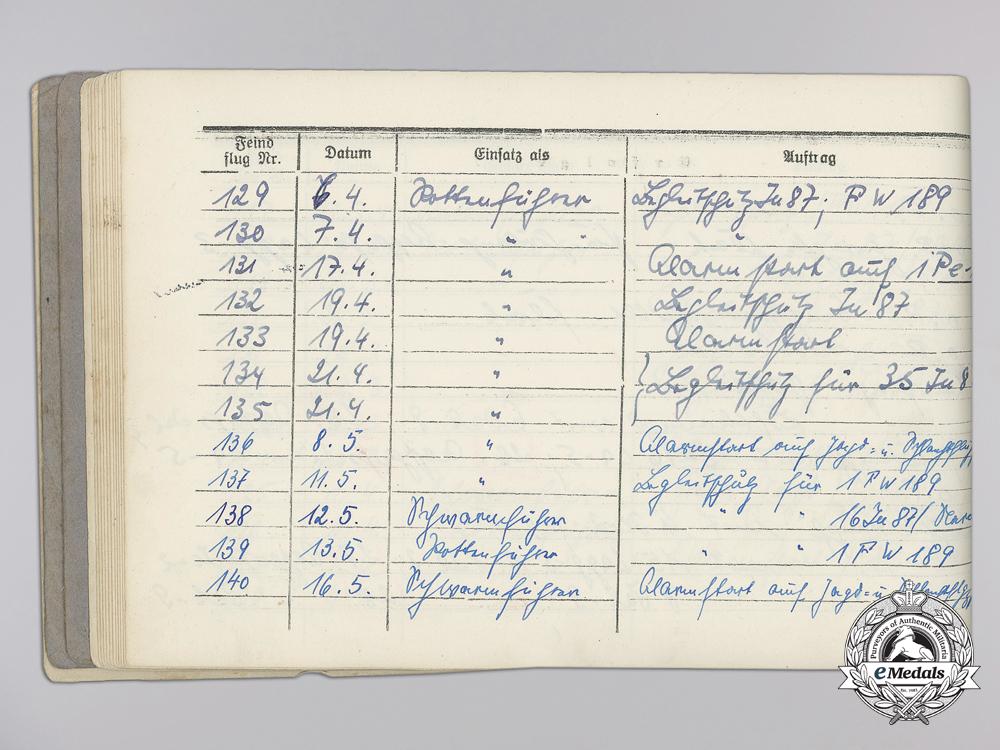 Feind
flug Nr. Datum Einsatz als Auftrag
129 6.4. Rottenführer Begleitschutz Ju 87, FW 189
130 7.4. " "
131 17.4. " Alarmstart auf 1 Pe-
132 19.4. " Begleitschutz Ju 87
133 19.4. " Alarmstart
134 21.4. " Begleitschutz für 35 Ju 8
135 21.4. "
136 8.5. " Alarmstart auf Jagd- u.
137 11.5. " Begleitschutz für 1 FW 189
138 12.5. Schwarmführer " " 16 Ju 87/
139 13.5. Rottenführer " " 1 FW 189
140 16.5. Schwarmführer Alarmstart auf Jagd- u.
Purveyors of Authentic Militaria
eMedals